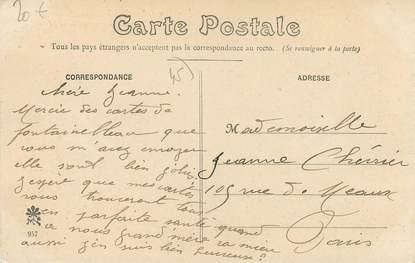 20 €
Carte Postale
Tous les pays étrangers n'acceptent pas la correspondance au recto. (Se renseigner à la poste)
CORRESPONDANCE
45
ADRESSE
Chère Jeanne
Mercie des cartes de
fontainebleau que
vous m'avez envoyer
elle sont bien jolie
j'espère que mes cartes
vous trouveront tous
en parfaite santé quand
a nous grand'mère va mieu
aussi j'en suis bien heureuse
957
Mademoiselle
Jeanne
105 rue de Meaux
Paris